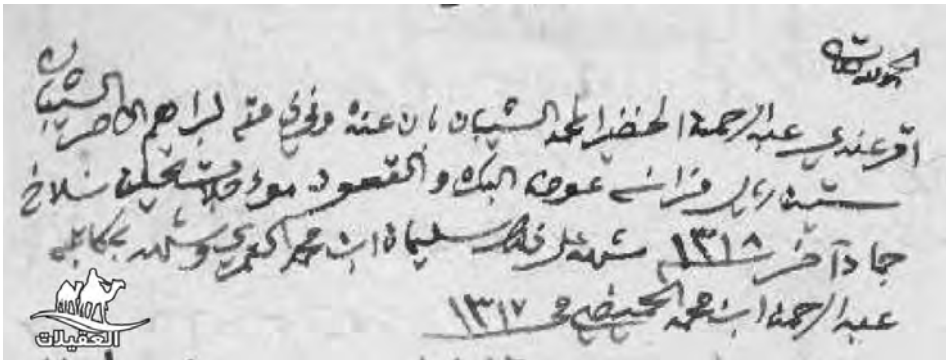 الحمد لله
اقر عندي عبد الرحمن الحمد الشيبان بان عنده وفي ذمته لبراهيم الشيبان
ستين ريال فرانسه عوض البكره والقعود موءجلات يحلن سلاخ
جماد آخر ١٣١٨ شهد على ذلك سليمان ابن محمد وشهد به كاتبه
عبد الرحمن ابن محمد الحميضي ١٣١٧
العقيلات